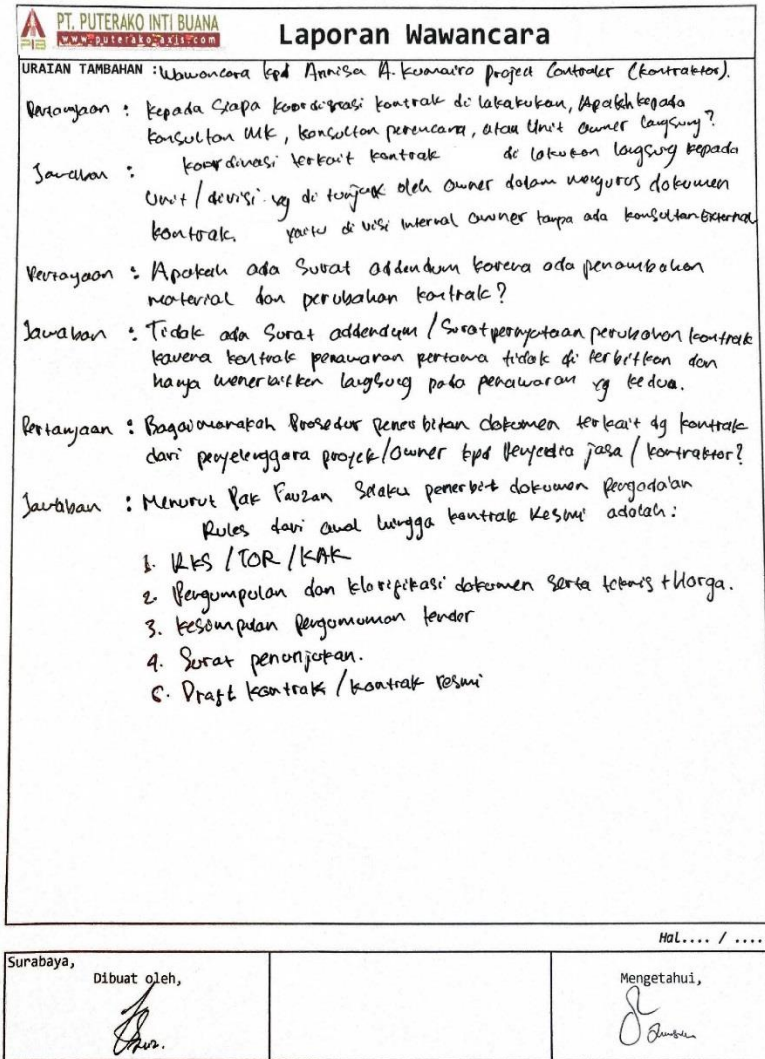 PT. PUTERAKO INTI BUANA
PIB www.puterako-axis.com
Laporan Wawancara
URAIAN TAMBAHAN : Wawancara kpd Annisa A. Kumairo Project Controler (kontraktor).
Pertanyaan : Kepada Siapa koordisnasi kontrak di lakakukan, Apakah kepada
konsultan MK, konsultan perencana, atau Unit owner langsung?
Jawaban : koordinasi terkait kontrak di lakukan langsung kepada
Unit / divisi yg di tunjuk oleh owner dalam mengurus dokumen
kontrak. yaitu di visi internal owner tanpa ada konsultan External
Pertayaan : Apakah ada Surat addendum karena ada penambahan
material dan perubahan kontrak?
Jawaban : Tidak ada Surat addendum / Surat pernyataan perubahan kontrak
karena kontrak penawaran pertama tidak di terbitkan dan
hanya menerbitken langsung pada penawaran yg kedua.
Pertanyaan : Bagaimanakah Prosedur penerbitan dokumen terkait dg kontrak
dari penyelenggara proyek/owner kpd Penyedia jasa / kontraktor?
Jawaban : Menurut Pak Fauzan Selaku penerbit dokumen Pengadaan
Rules dari awal hingga kontrak Resmi adalah:
1. RKS / TOR / KAK
2. Pengumpulan dan klarifikasi dokumen serta teknis + Harga.
3. Kesimpulan pengumuman tender
4. Surat penunjukan.
5. Draft kontrak / kontrak resmi
Hal.... / ....
Surabaya,
Dibuat oleh,
Mengetahui,